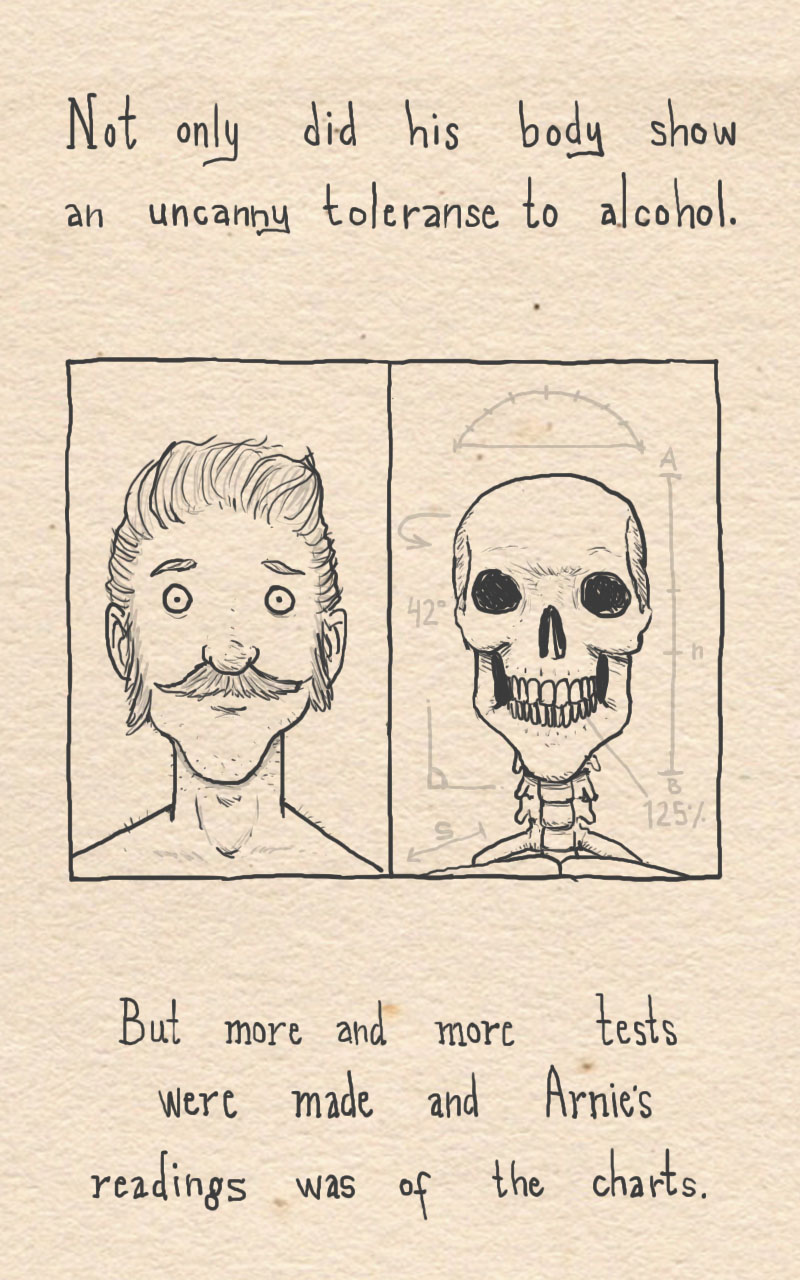 Not only did his body show
an uncanny toleranse to alcohol.
A
42°
n
B
125%
S
But more and more tests
were made and Arnie's
readings was of the charts.